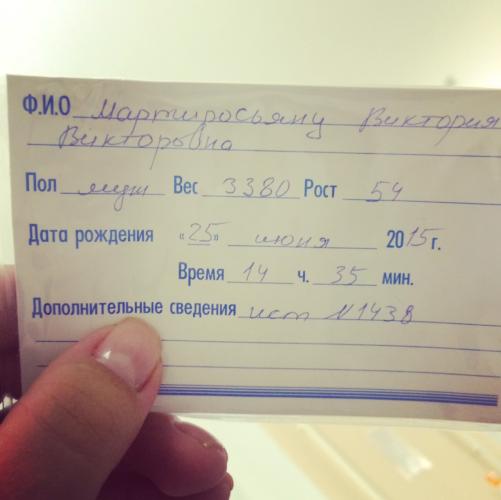 Ф.И.О Мартиросьянц Виктория
Викторовна
Пол муж Вес 3380 Рост 54
Дата рождения «25» июня 2015 г.
Время 14 ч. 35 мин.
Дополнительные сведения ист N1438